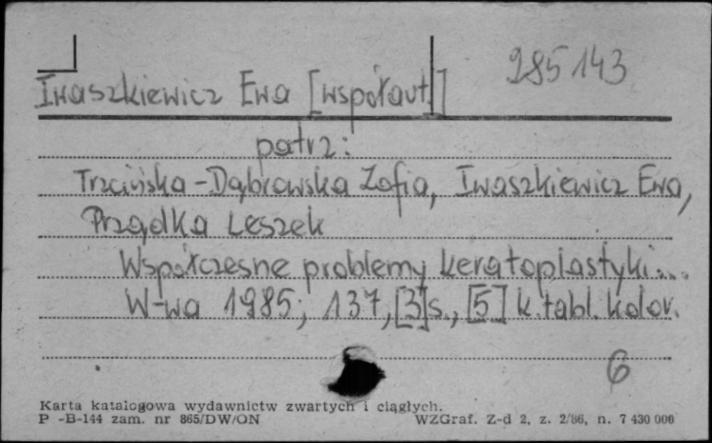 285143
Iwaszkiewicz Ewa [współaut.]
patrz:
Trzcińska-Dąbrowska Zofia, Iwaszkiewicz Ewa,
Prządka Leszek
Współczesne problemy keratoplastyki...
W-wa 1985; 137,[3]s., [5] k. tabl. kolor.
6
Karta katalogowa wydawnictw zwartych i ciągłych.
P -B-144 zam. nr 865/DW/ON WZGraf. Z-d 2, z. 2/86, n. 7 430 000